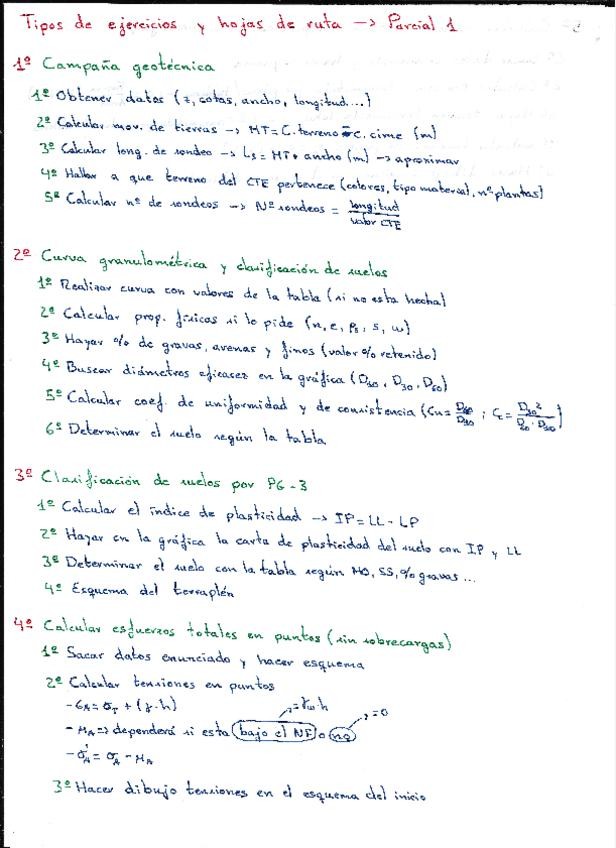 Tipos de ejercicios y hojas de ruta -> Parcial 1
1º Campaña geotécnica
1º Obtener datos (z, cotas, ancho, longitud...)
2º Calcular mov. de tierras -> MT = C. terreno - c. cime (m)
3º Calcular long. de sondeo -> Ls = MT + ancho (m) -> aproximar
4º Hallar a que terreno del CTE pertenece (colores, tipo material, nº plantas)
5º Calcular nº de sondeos -> Nº sondeos = longitud / valor CTE
2º Curva granulométrica y clasificación de suelos
1º Realizar curva con valores de la tabla (si no esta hecha)
2º Calcular prop. físicas si lo pide (n, e, ρs, s, w)
3º Hayar % de gravas, arenas y finos (valor % retenido)
4º Buscar diámetros eficaces en la gráfica (D10, D30, D60)
5º Calcular coef. de uniformidad y de consistencia (Cu = D60 / D10 ; Cc = D30² / D60 · D10)
6º Determinar el suelo según la tabla
3º Clasificación de suelos por PG-3
1º Calcular el índice de plasticidad -> IP = LL - LP
2º Hayar en la gráfica la carta de plasticidad del suelo con IP y LL
3º Determinar el suelo con la tabla según MO, SS, % gravas...
4º Esquema del terraplén
4º Calcular esfuerzos totales en puntos (sin sobrecargas)
1º Sacar datos enunciado y hacer esquema
2º Calcular tensiones en puntos
- σA = σT + (γ·h)
= γw·h
= 0
- μA => dependerá si esta bajo el NF o no
- σ'A = σA - μA
3º Hacer dibujo tensiones en el esquema del inicio